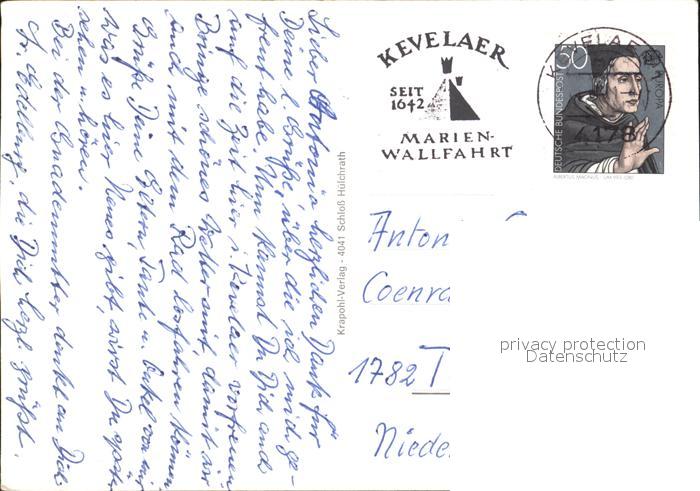 Lieber Antonio herzlichen Dank für
Deine l. Grüße, über die ich mich ge-
freut habe. Nun kannst Du Dich auch
auf die Zeit hier i. Kevelaer vorfreuen
Bringe schönes Wetter mit, damit wir
auch mit dem Rad losfahren können
Grüße Deine Eltern, Tante u. Onkel von mir
Was es hier Neues gibt, wirst Du später
sehen u. hören.
Bei der Gnadenmutter denkt an Dich
Sr. Edelburg, die Dich herzl. grüßt.
Krapohl-Verlag - 4041 Schloß Hülchrath
KEVELAER
SEIT
1642
MARIEN-
WALLFAHRT
KEVELAER
4178
50
DEUTSCHE BUNDESPOST
ALBERTUS MAGNUS
Anton
Coenra
1782 T
Niede
privacy protection
Datenschutz